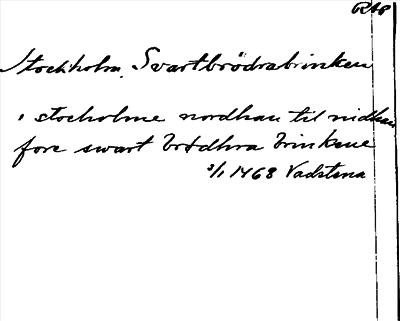 RAP
Stockholm, Svartbrödrabrinken
i stocholme nordhan til nidhan
fore swart brødhra brinkene
3/1 1468 Vadstena